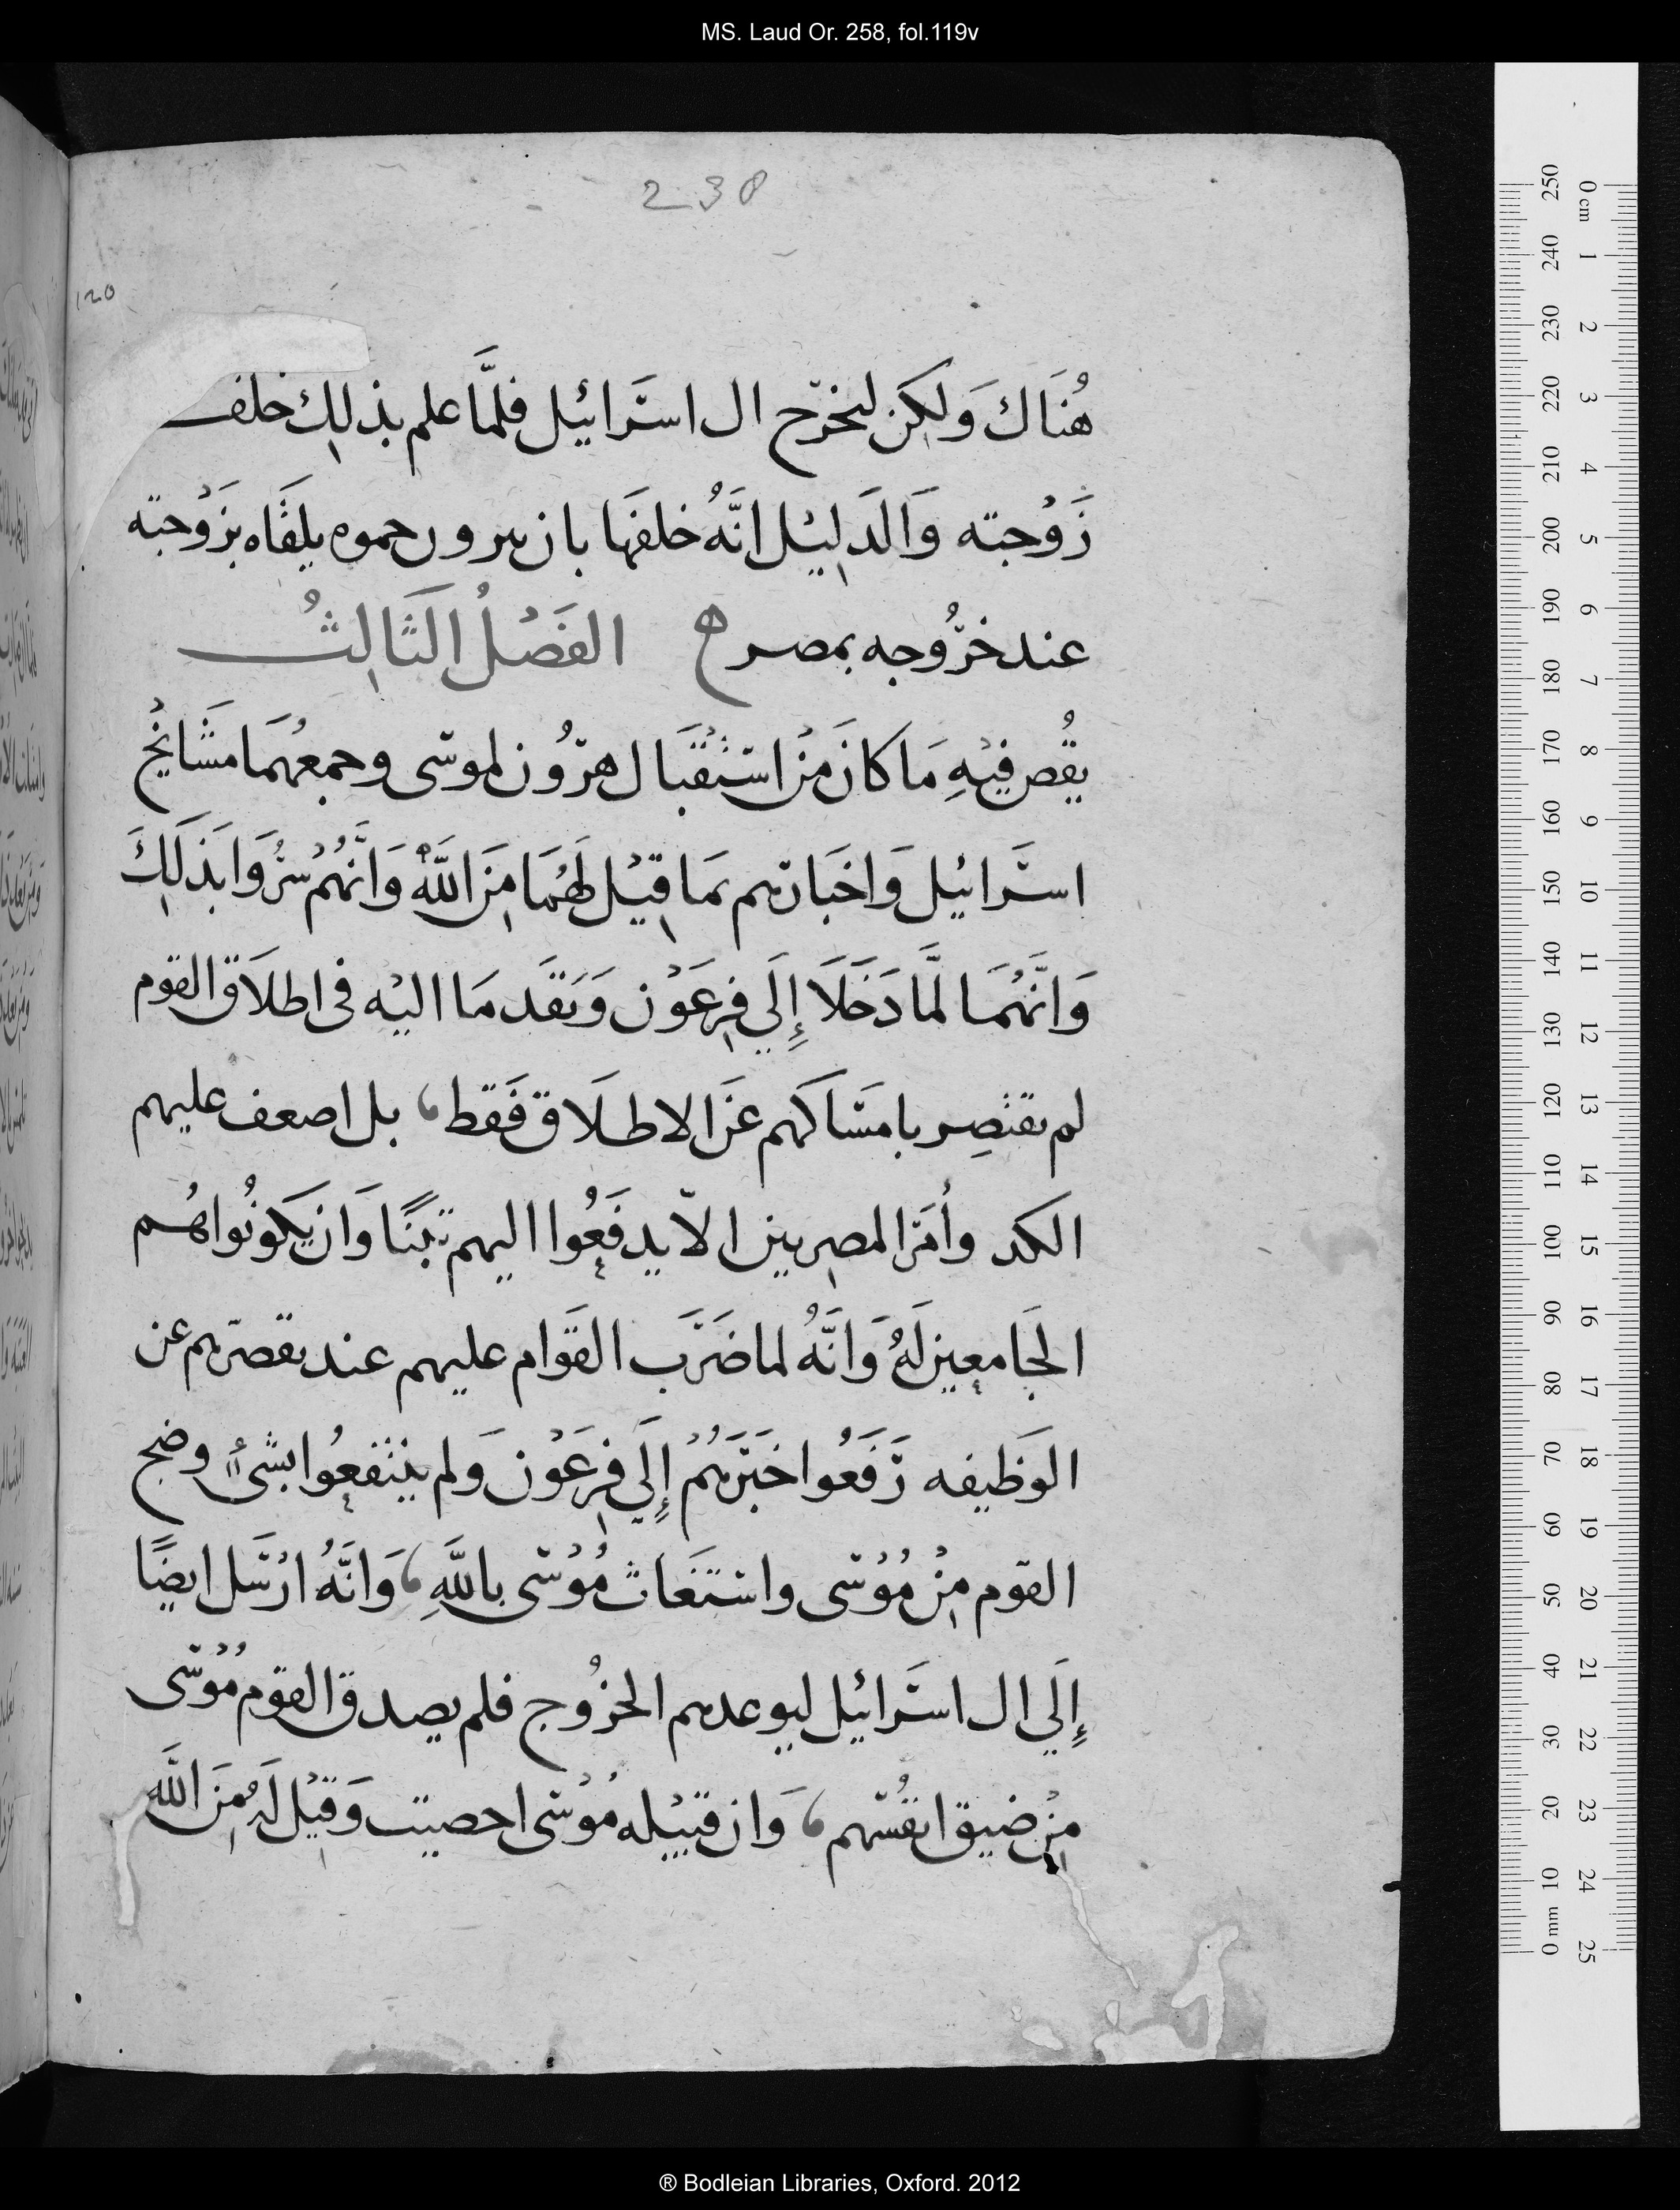 MS. Laud Or. 258, fol.119v
238
120
هُنَاكَ وَلكِن ليخرج ال اسرَائيل فلمَّا علم بذلِك خلف
زَوْجته وَالدَليْل انَّهُ خلفَها بان يرون حموه يلقَاه بزَوْجته
عند خرُوجه بمصر ح الفَصْلُ الثَالِثُ
يقُص فيْهِ مَا كانَ مِنْ اسْتقْبَال هرُون لموسى وجمعهُمَا مشَايخْ
اسرَائيل وَاخبَارهم بمَا قيْل لَهُمَا مِنَ اللَّه وَانَّهُم سُرُّوَا بذَلِكَ
وَانَّهُمَا لمَّا دَخَلَا إِلَي فِرعَوْن وَتقَدمَا اليْه فى اطلَاق القوم
لم يقتصِر بامسَاكهم عَن الاطلَاق فَقط، بل اضعف عليهم
الكد وأمَر المصريين الا يدفَعُوا اليهم تبنًا وَان يَكونُوا هُم
الجَامعين لَهُ وَانَّهُ لما ضَرَب القَوام عليهم عند تقصرهم عن
الوَظيفه رَفَعُوا خبَرَهُمْ إِلَي فِرعَوْنَ وَلم ينتفعُوا بشىءٍ وضج
القوم مِنْ مُوْسى واستغَاث مُوْسى باللَّهِ، وَانَّهُ ارْسَل ايضًا
إِلَي ال اسرَائيل ليوعدهم الخرُوج فلم يصدق القوم مُوْسى
مِنْ ضيق انفُسهم، وَان قبيْله مُوْسى احصيت وَقيْل لَهُ مِنَ اللَّه
0 cm 1 2 3 4 5 6 7 8 9 10 11 12 13 14 15 16 17 18 19 20 21 22 23 24 25
250 240 230 220 210 200 190 180 170 160 150 140 130 120 110 100 90 80 70 60 50 40 30 20 10 0 mm
® Bodleian Libraries, Oxford. 2012